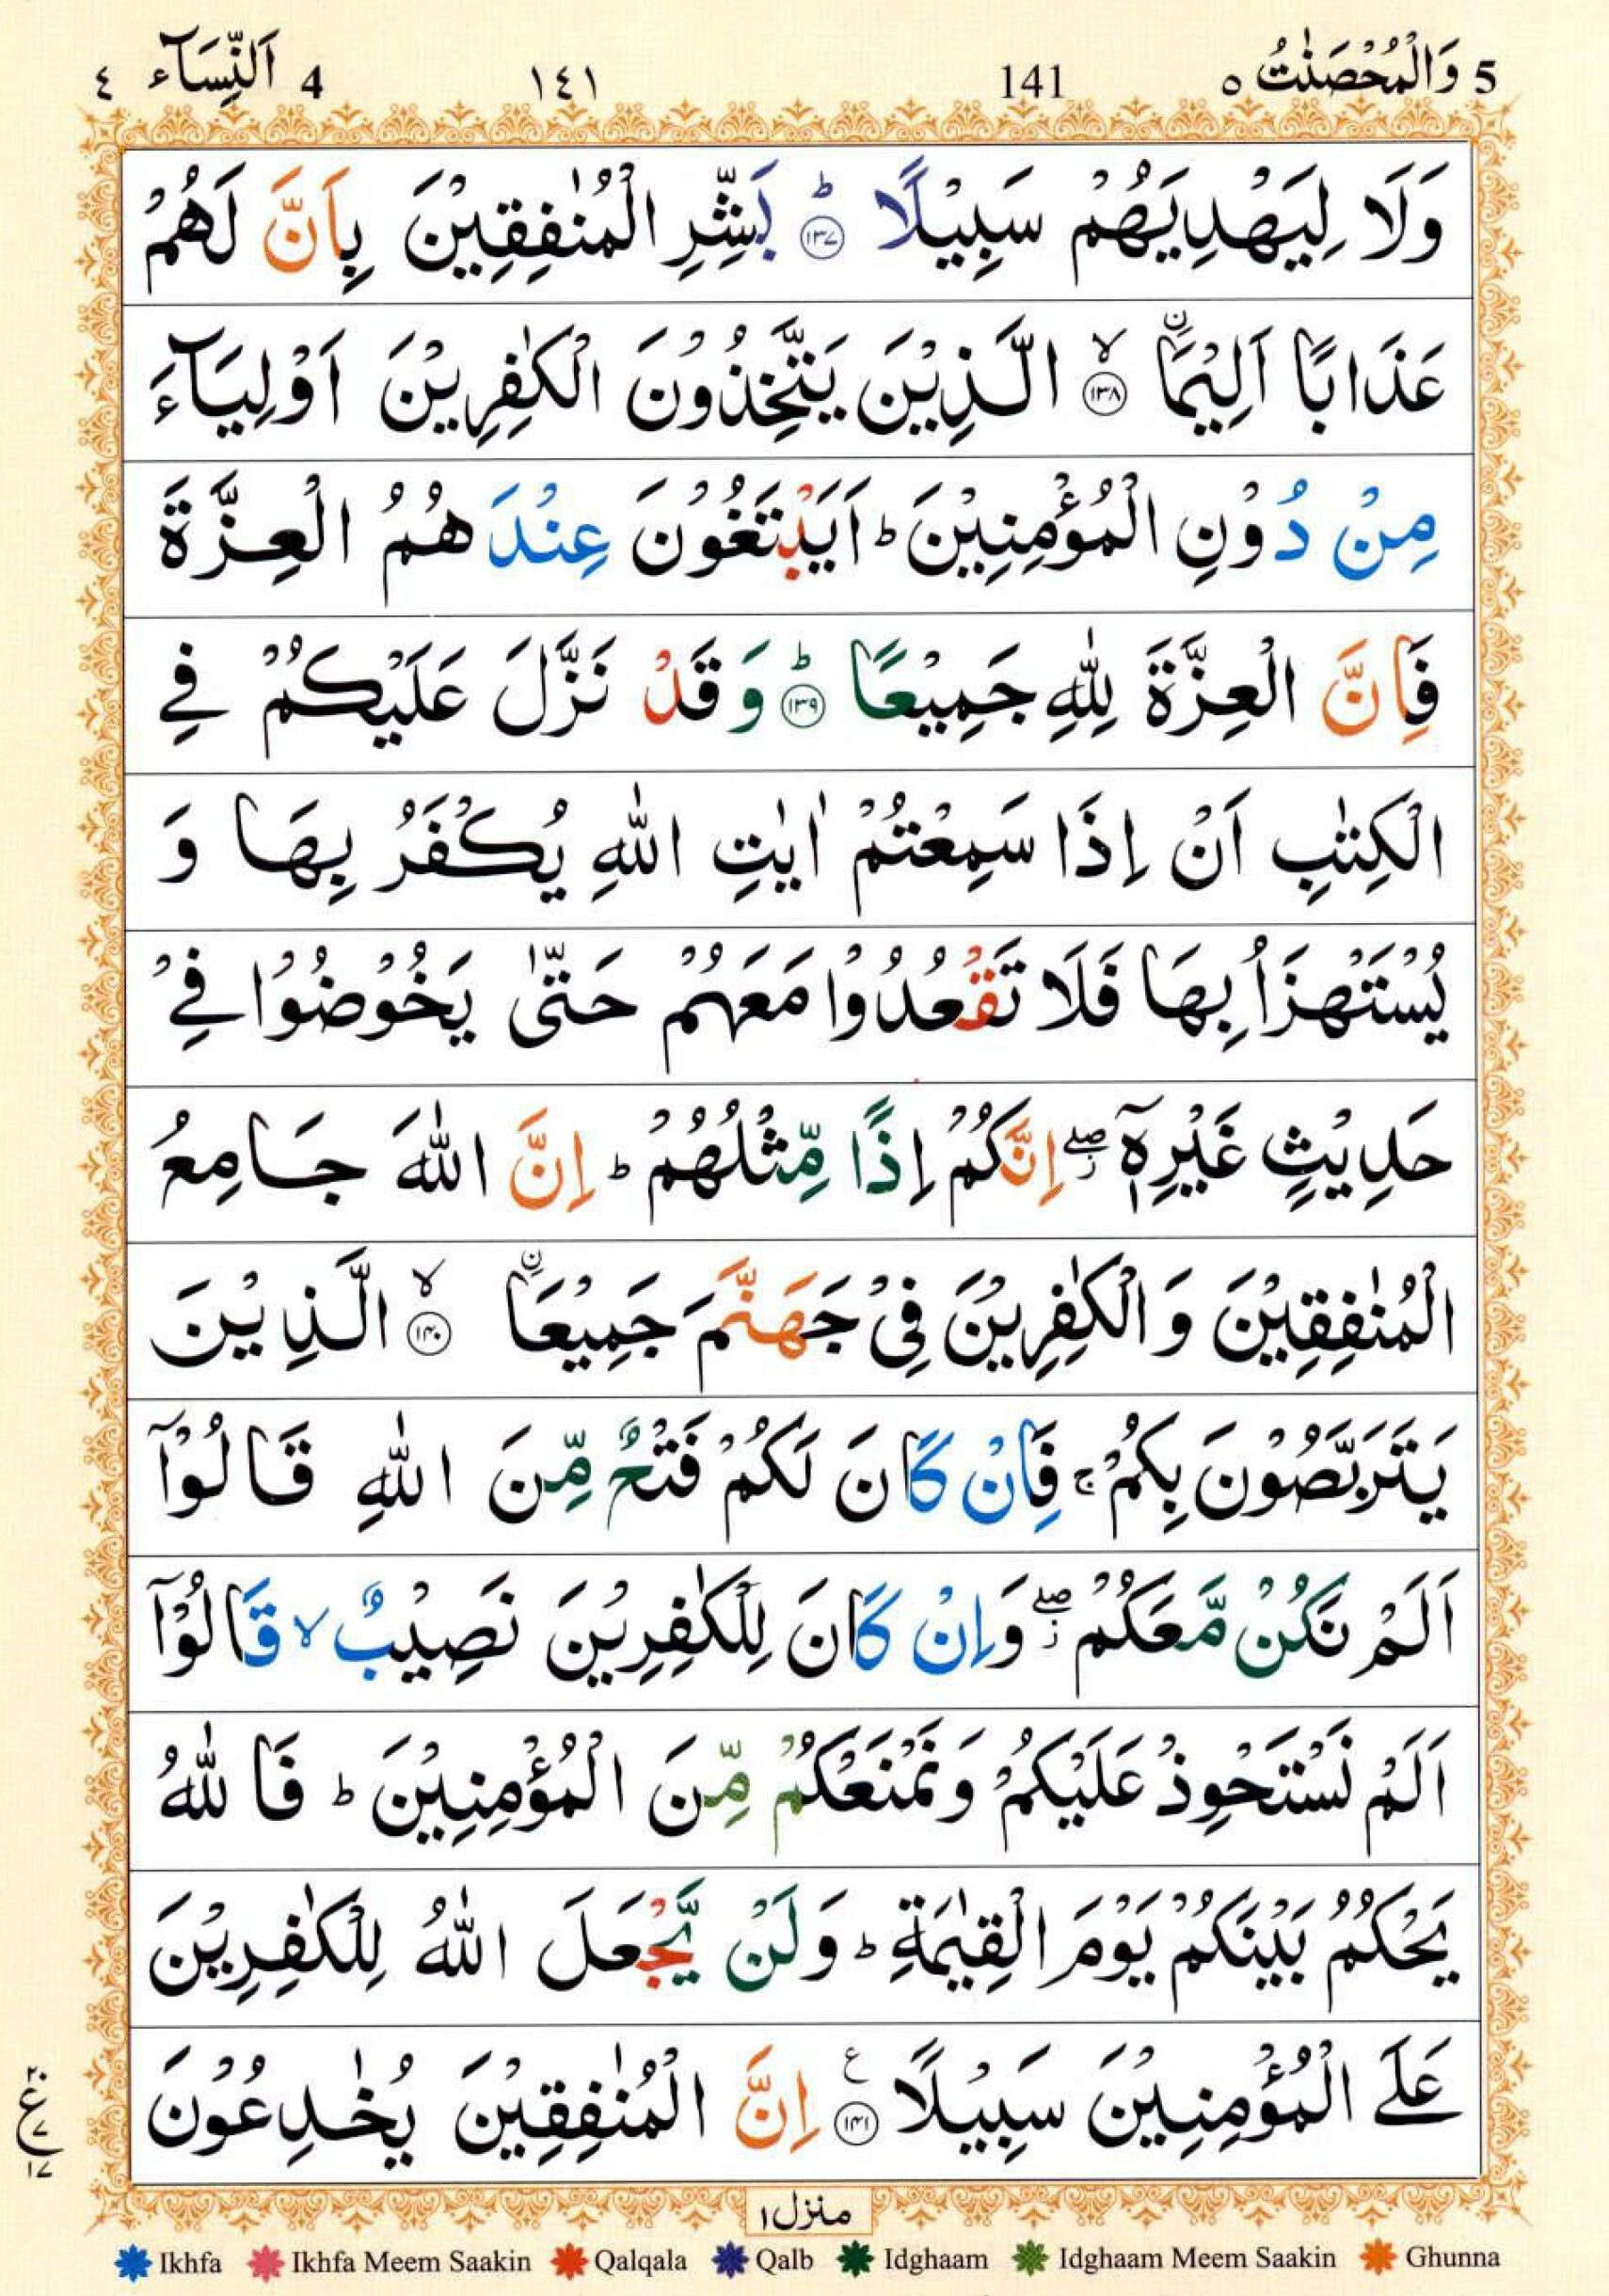 5 وَالْمُحْصَنٰتُ ٥ 141 ١٤١ 4 اَلنِّسَآء ٤
وَلَا لِيَهْدِيَهُمْ سَبِيْلًا ؕ ۱۳۷ بَشِّرِ الْمُنٰفِقِيْنَ بِاَنَّ لَهُمْ
عَذَابًا اَلِيْمَاۨ ۙ ۱۳۸ الَّذِيْنَ يَتَّخِذُوْنَ الْكٰفِرِيْنَ اَوْلِيَآءَ
مِنْ دُوْنِ الْمُؤْمِنِيْنَ ؕ اَيَبْتَغُوْنَ عِنْدَهُمُ الْعِزَّةَ
فَاِنَّ الْعِزَّةَ لِلّٰهِ جَمِيْعًا ؕ ۱۳۹ وَقَدْ نَزَّلَ عَلَيْكُمْ فِي
الْكِتٰبِ اَنْ اِذَا سَمِعْتُمْ اٰيٰتِ اللّٰهِ يُكْفَرُ بِهَا وَ
يُسْتَهْزَاُ بِهَا فَلَا تَقْعُدُوْا مَعَهُمْ حَتّٰى يَخُوْضُوْا فِيْ
حَدِيْثٍ غَيْرِهٖۤ ۖ اِنَّكُمْ اِذًا مِّثْلُهُمْ ؕ اِنَّ اللّٰهَ جَامِعُ
الْمُنٰفِقِيْنَ وَالْكٰفِرِيْنَ فِيْ جَهَنَّمَ جَمِيْعَاۨ ۙ ۱۴۰ الَّذِيْنَ
يَتَرَبَّصُوْنَ بِكُمْ ۚ فَاِنْ كَانَ لَكُمْ فَتْحٌ مِّنَ اللّٰهِ قَالُوْۤا
اَلَمْ نَكُنْ مَّعَكُمْ ۖ وَاِنْ كَانَ لِلْكٰفِرِيْنَ نَصِيْبٌ ۙ قَالُوْۤا
اَلَمْ نَسْتَحْوِذْ عَلَيْكُمْ وَنَمْنَعْكُمْ مِّنَ الْمُؤْمِنِيْنَ ؕ فَاللّٰهُ
يَحْكُمُ بَيْنَكُمْ يَوْمَ الْقِيٰمَةِ ؕ وَلَنْ يَّجْعَلَ اللّٰهُ لِلْكٰفِرِيْنَ
عَلَي الْمُؤْمِنِيْنَ سَبِيْلًا ع ۱۴۱ اِنَّ الْمُنٰفِقِيْنَ يُخٰدِعُوْنَ
۲۰ ع ۷ ۱۷
منزل ۱
Ikhfa Ikhfa Meem Saakin Qalqala Qalb Idghaam Idghaam Meem Saakin Ghunna